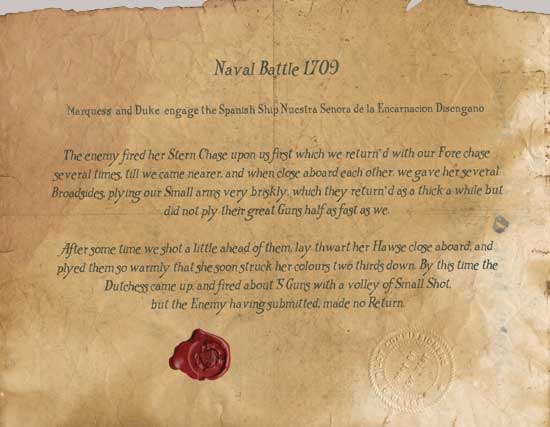 Naval Battle 1709
Marquess and Duke engage the Spanish Ship Nuestra Senora de la Encarnacion Disengano
The enemy fired her Stern Chase upon us first which we return'd with our Fore chase
several times, till we came nearer, and when close aboard each other, we gave her several
Broadsides, plying our Small arms very briskly, which they return'd as a thick a while but
did not ply their great Guns half as fast as we.
After some time we shot a little ahead of them, lay thwart her Hawse close aboard; and
plyed them so warmly that she soon struck her colours two thirds down. By this time the
Dutchess came up, and fired about 5 Guns with a volley of Small Shot,
but the Enemy having submitted, made no Return.